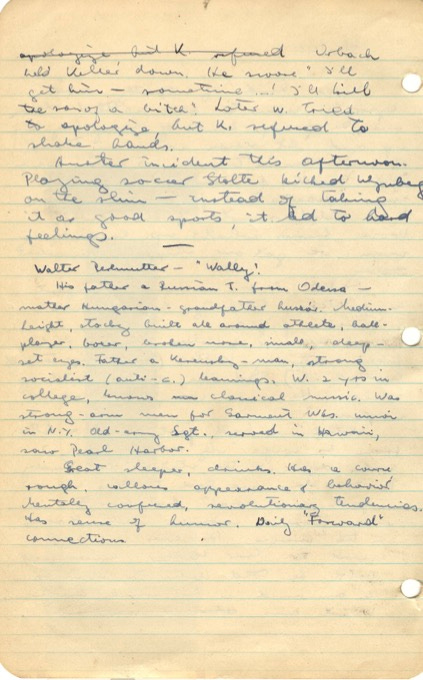 apologize but K. refused Orbach
held Keller down. He swore "I'll
get him — sometime...! I'll kill
the son of a bitch! Later W. tried
to apologize, but K. refused to
shake hands.
Another incident this afternoon.
Playing soccer Stolte kicked Wynberg
on the shin — instead of taking
it as good sports, it led to hard
feelings.
Walter — "Wally".
His father a Russian J. from Odessa —
mother Hungarian — grandfather hussar. Medium
height, stocky built all around athlete, ball-
player, boxer, broken nose, small, deep-
set eyes. Father a Kerensky-man, strong
socialist (anti-c.) leanings. W. 2 yrs in
college, knows classical music. Was
strong-arm man for Garment Wks. union
in N.Y. Old-army Sgt., served in Hawaii,
saw Pearl Harbor.
Great sleeper, drinks. Has a coarse
rough, callous appearance & behavior
Mentally confused, revolutionary tendencies.
Has sense of humor. Daily "Forward"
connections